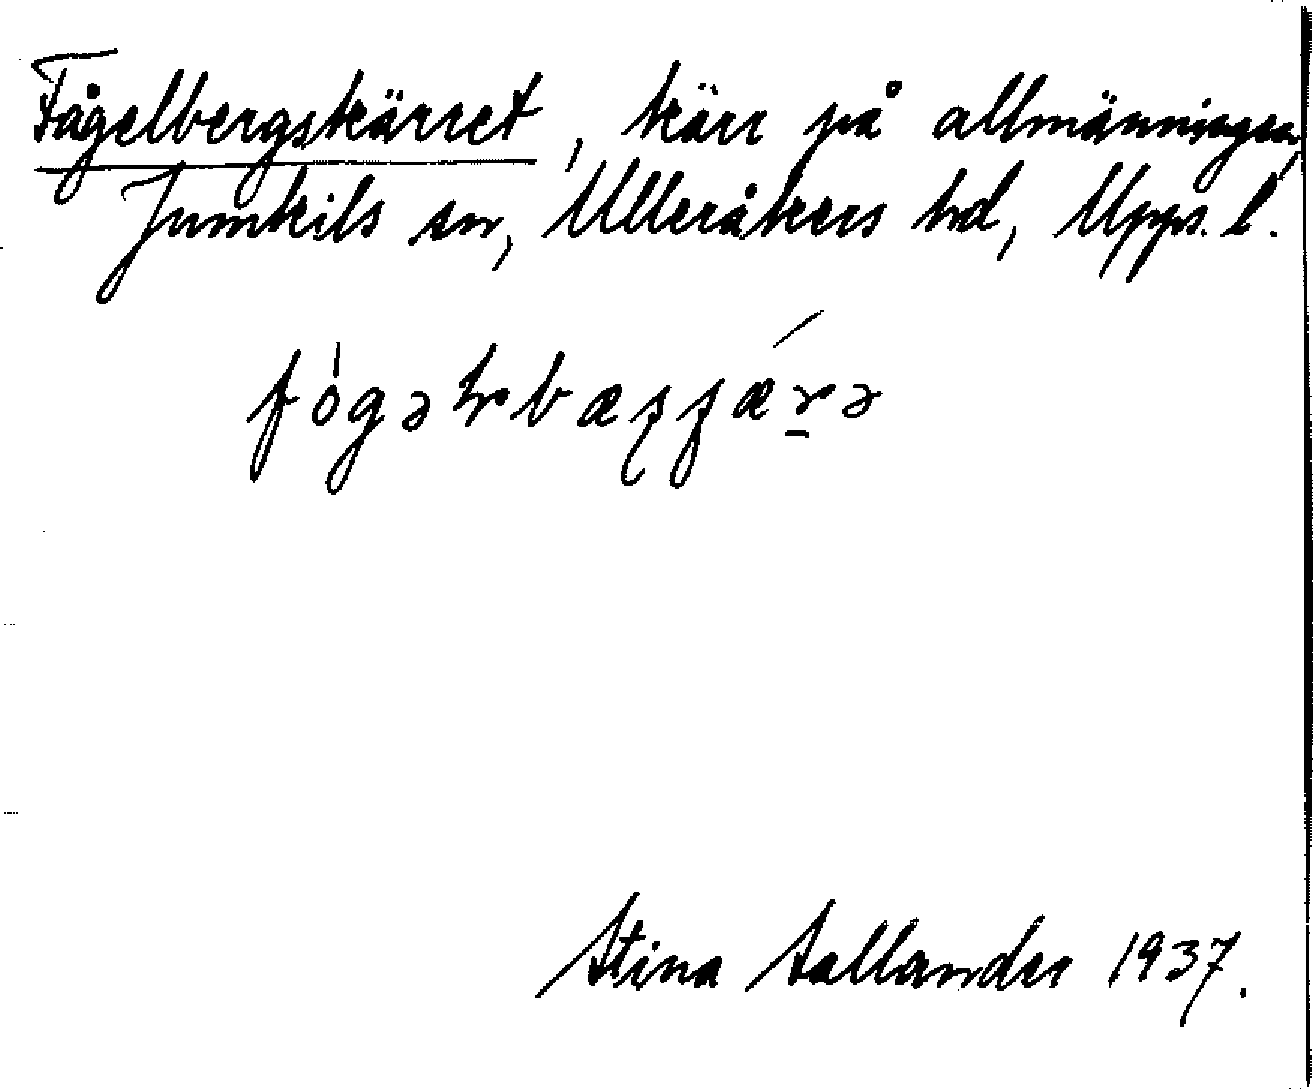 Fågelbergskärret, kärr på allmänningen,
Jumkils sn, Ulleråkers hd, Upps. l.
Stina Sallander 1937.